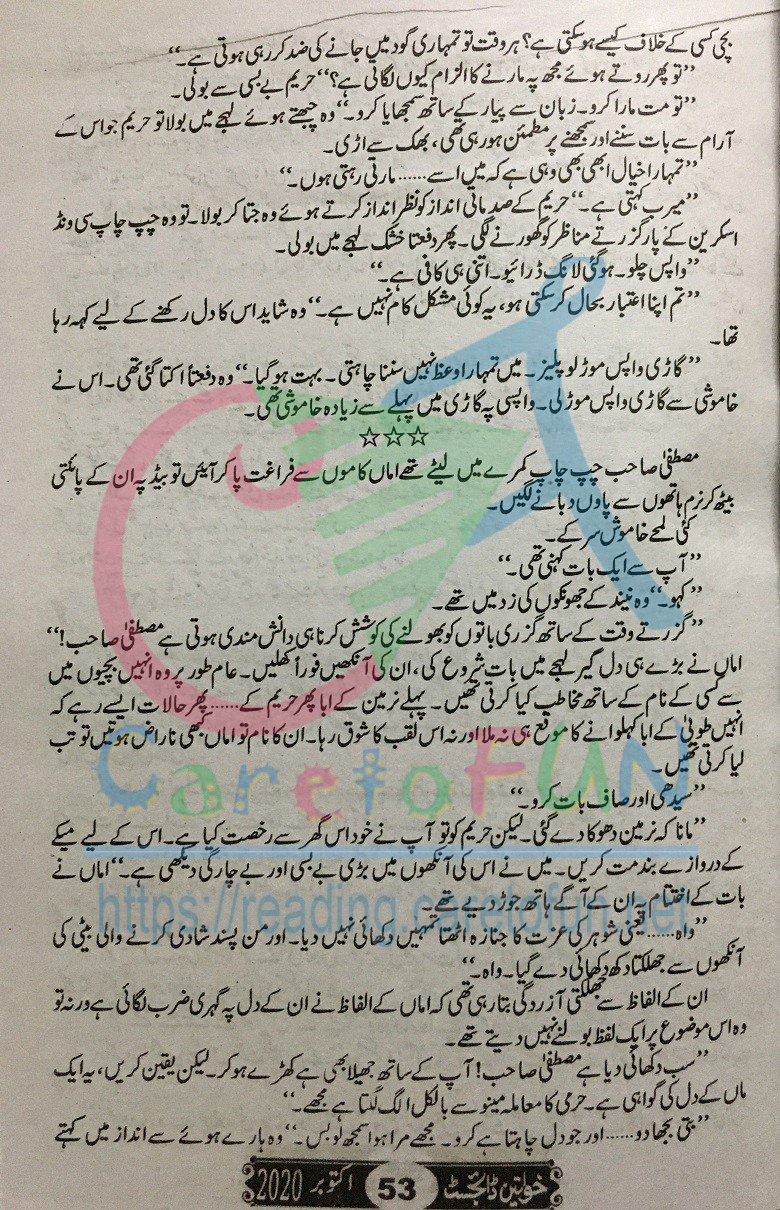 بچی کسی کے خلاف کیسے ہوسکتی ہے؟ ہر وقت تو تمہاری گود میں جانے کی ضد کر رہی ہوتی ہے۔‘‘
’’تو پھر روتے ہوئے مجھ پہ مارنے کا الزام کیوں لگاتی ہے؟‘‘ حریم بے بسی سے بولی۔
’’تو مت مارا کرو۔ زبان سے پیار کے ساتھ سمجھایا کرو۔‘‘ وہ چبھتے ہوئے لہجے میں بولا تو حریم جو اس کے
آرام سے بات سننے اور سمجھنے پر مطمئن ہو رہی تھی، بھک سے اڑی۔
’’تمہارا خیال ابھی بھی وہی ہے کہ میں اسے...... مارتی رہتی ہوں۔‘‘
’’میرب کہتی ہے۔‘‘ حریم کے صدماتی انداز کو نظر انداز کرتے ہوئے وہ جتا کر بولا۔ تو وہ چپ چاپ سی ونڈ
اسکرین کے پار گزرتے مناظر کو گھورنے لگی۔ پھر دفعتاً خشک لہجے میں بولی۔
’’واپس چلو۔ ہوگئی لانگ ڈرائیو۔ اتنی ہی کافی ہے۔‘‘
’’تم اپنا اعتبار بحال کرسکتی ہو، یہ کوئی مشکل کام نہیں ہے۔‘‘ وہ شاید اس کا دل رکھنے کے لیے کہہ رہا
تھا۔
’’گاڑی واپس موڑ لو پلیز۔ میں تمہارا وعظ نہیں سننا چاہتی۔ بہت ہوگیا۔‘‘ وہ دفعتاً اکتا گئی تھی۔ اس نے
خاموشی سے گاڑی واپس موڑ لی۔ واپسی پہ گاڑی میں پہلے سے زیادہ خاموشی تھی۔
☆☆☆
مصطفیٰ صاحب چپ چاپ کمرے میں لیٹے تھے اماں کاموں سے فراغت پا کر آئیں تو بیڈ پہ ان کے پائنتی
بیٹھ کر نرم ہاتھوں سے پاوں دبانے لگیں۔
کئی لمحے خاموش سرکے۔
’’آپ سے ایک بات کہنی تھی۔‘‘
’’کہو۔‘‘ وہ نیند کے جھونکوں کی زد میں تھے۔
’’گزرتے وقت کے ساتھ گزری باتوں کو بھولنے کی کوشش کرنا ہی دانش مندی ہوتی ہے مصطفیٰ صاحب!‘‘
اماں نے بڑے ہی دل گیر لہجے میں بات شروع کی، ان کی آنکھیں فوراً کھلیں۔ عام طور پر وہ انہیں بچیوں میں
سے کسی کے نام کے ساتھ مخاطب کیا کرتی تھیں۔ پہلے نرمین کے ابا پھر حریم کے...... پھر حالات ایسے رہے کہ
انہیں طوبیٰ کے ابا کہلوانے کا موقع ہی نہ ملا اور نہ اس لقب کا شوق رہا۔ ان کا نام تو اماں کبھی ناراض ہوتیں تو تب
لیا کرتی تھیں۔
’’سیدھی اور صاف بات کرو۔‘‘
’’مانا کہ نرمین دھوکا دے گئی۔ لیکن حریم کو تو آپ نے خود اس گھر سے رخصت کیا ہے۔ اس کے لیے میکے
کے دروازے بند مت کریں۔ میں نے اس کی آنکھوں میں بڑی بے بسی اور بے چارگی دیکھی ہے۔‘‘ اماں نے
بات کے اختتام پہ ان کے آگے ہاتھ جوڑ دیے تھے۔
’’واہ...... یعنی شوہر کی عزت کا جنازہ اٹھتا تمہیں دکھائی نہیں دیا۔ اور من پسند شادی کرنے والی بیٹی کی
آنکھوں سے جھلکتا دکھ دکھائی دے گیا۔ واہ۔‘‘
ان کے الفاظ سے جھلکتی آزردگی بتا رہی تھی کہ اماں کے الفاظ نے ان کے دل پہ گہری ضرب لگائی ہے ورنہ تو
وہ اس موضوع پر ایک لفظ بولنے نہیں دیتے تھے۔
’’سب دکھائی دیا ہے مصطفیٰ صاحب! آپ کے ساتھ جھیلا بھی ہے کھڑے ہو کر۔ لیکن یقین کریں، یہ ایک
ماں کے دل کی گواہی ہے۔ حرمی کا معاملہ مینو سے بالکل الگ لگتا ہے مجھے۔‘‘
’’بتی بجھا دو...... اور جو دل چاہتا ہے کرو۔ مجھے مرا ہوا سمجھ لو بس۔‘‘ وہ ہارے ہوئے سے انداز میں کہتے
خواتین ڈائجسٹ 53 اکتوبر 2020
CaretoFUN
https://reading.caretofun.net